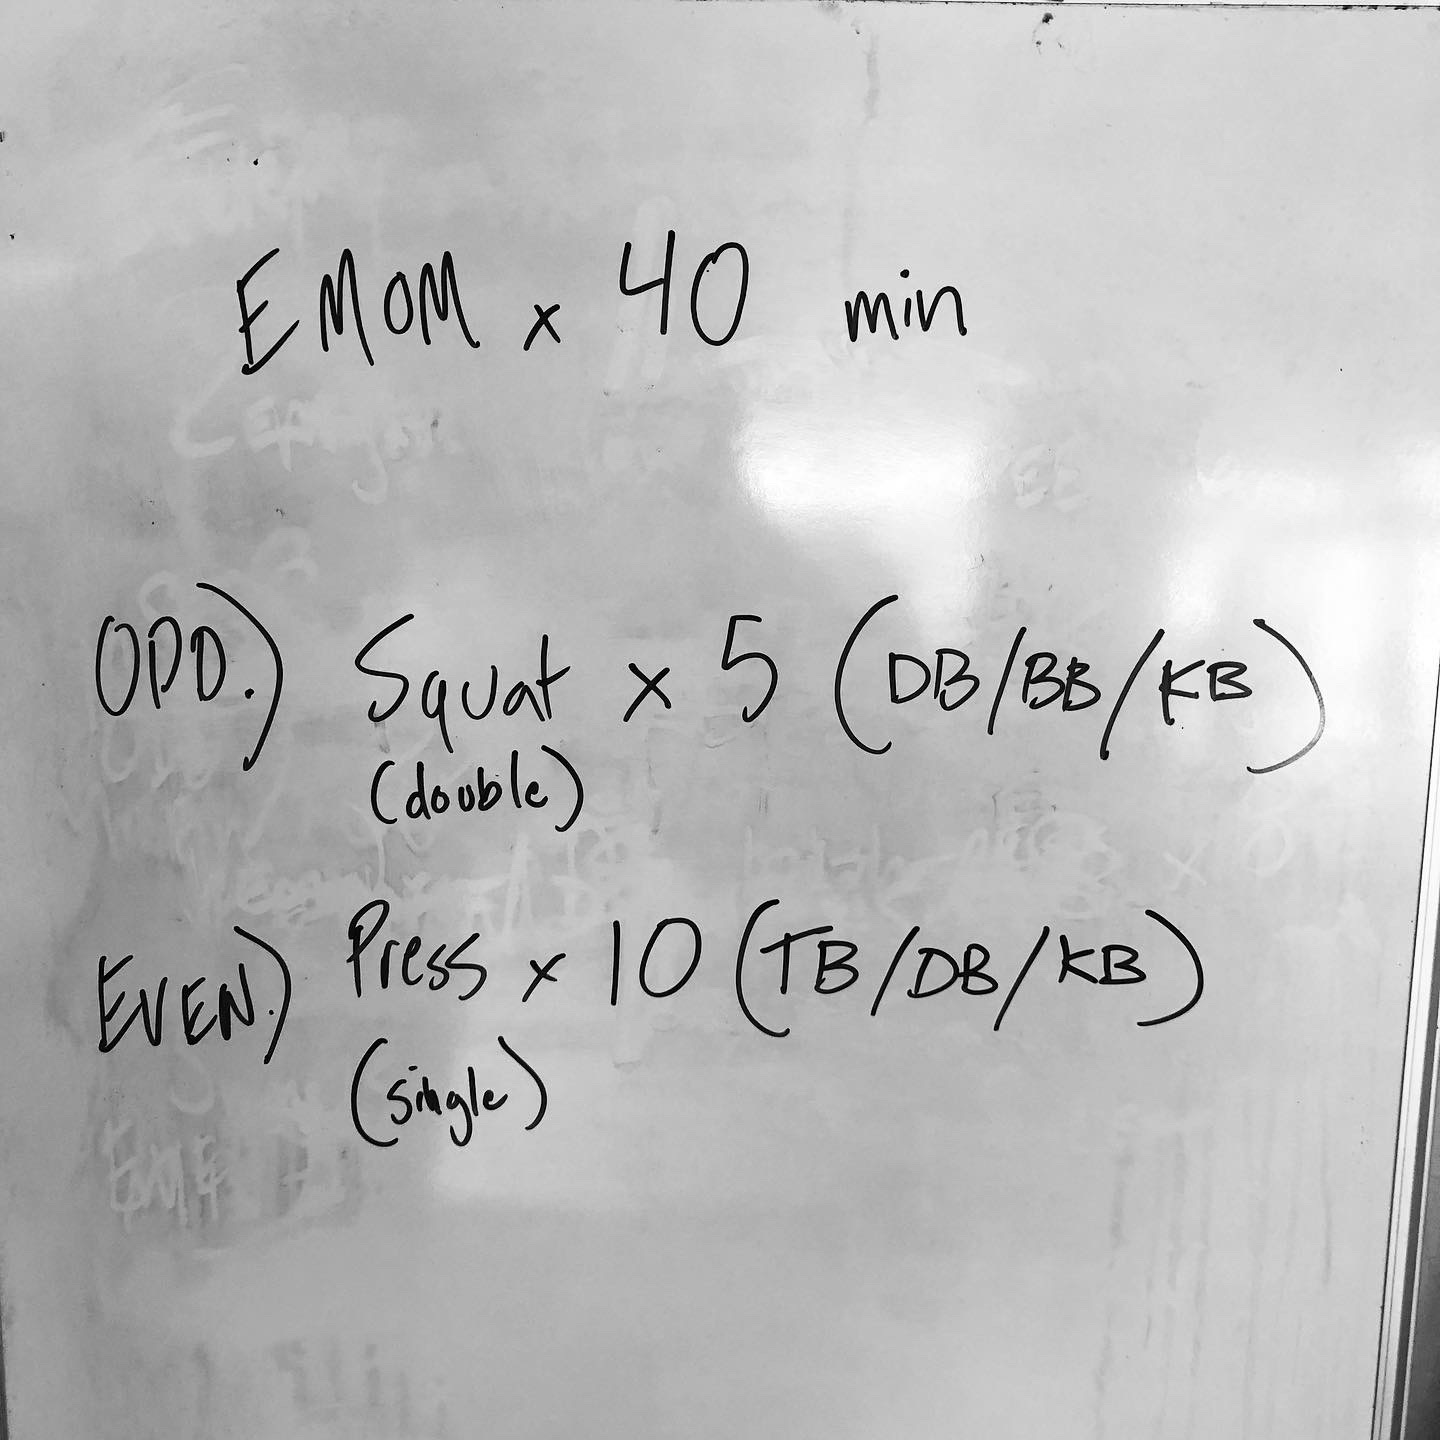 EMOM x 40 min
ODD.) Squat x 5 (DB/BB/KB)
(double)
EVEN.) Press x 10 (TB/DB/KB)
(single)